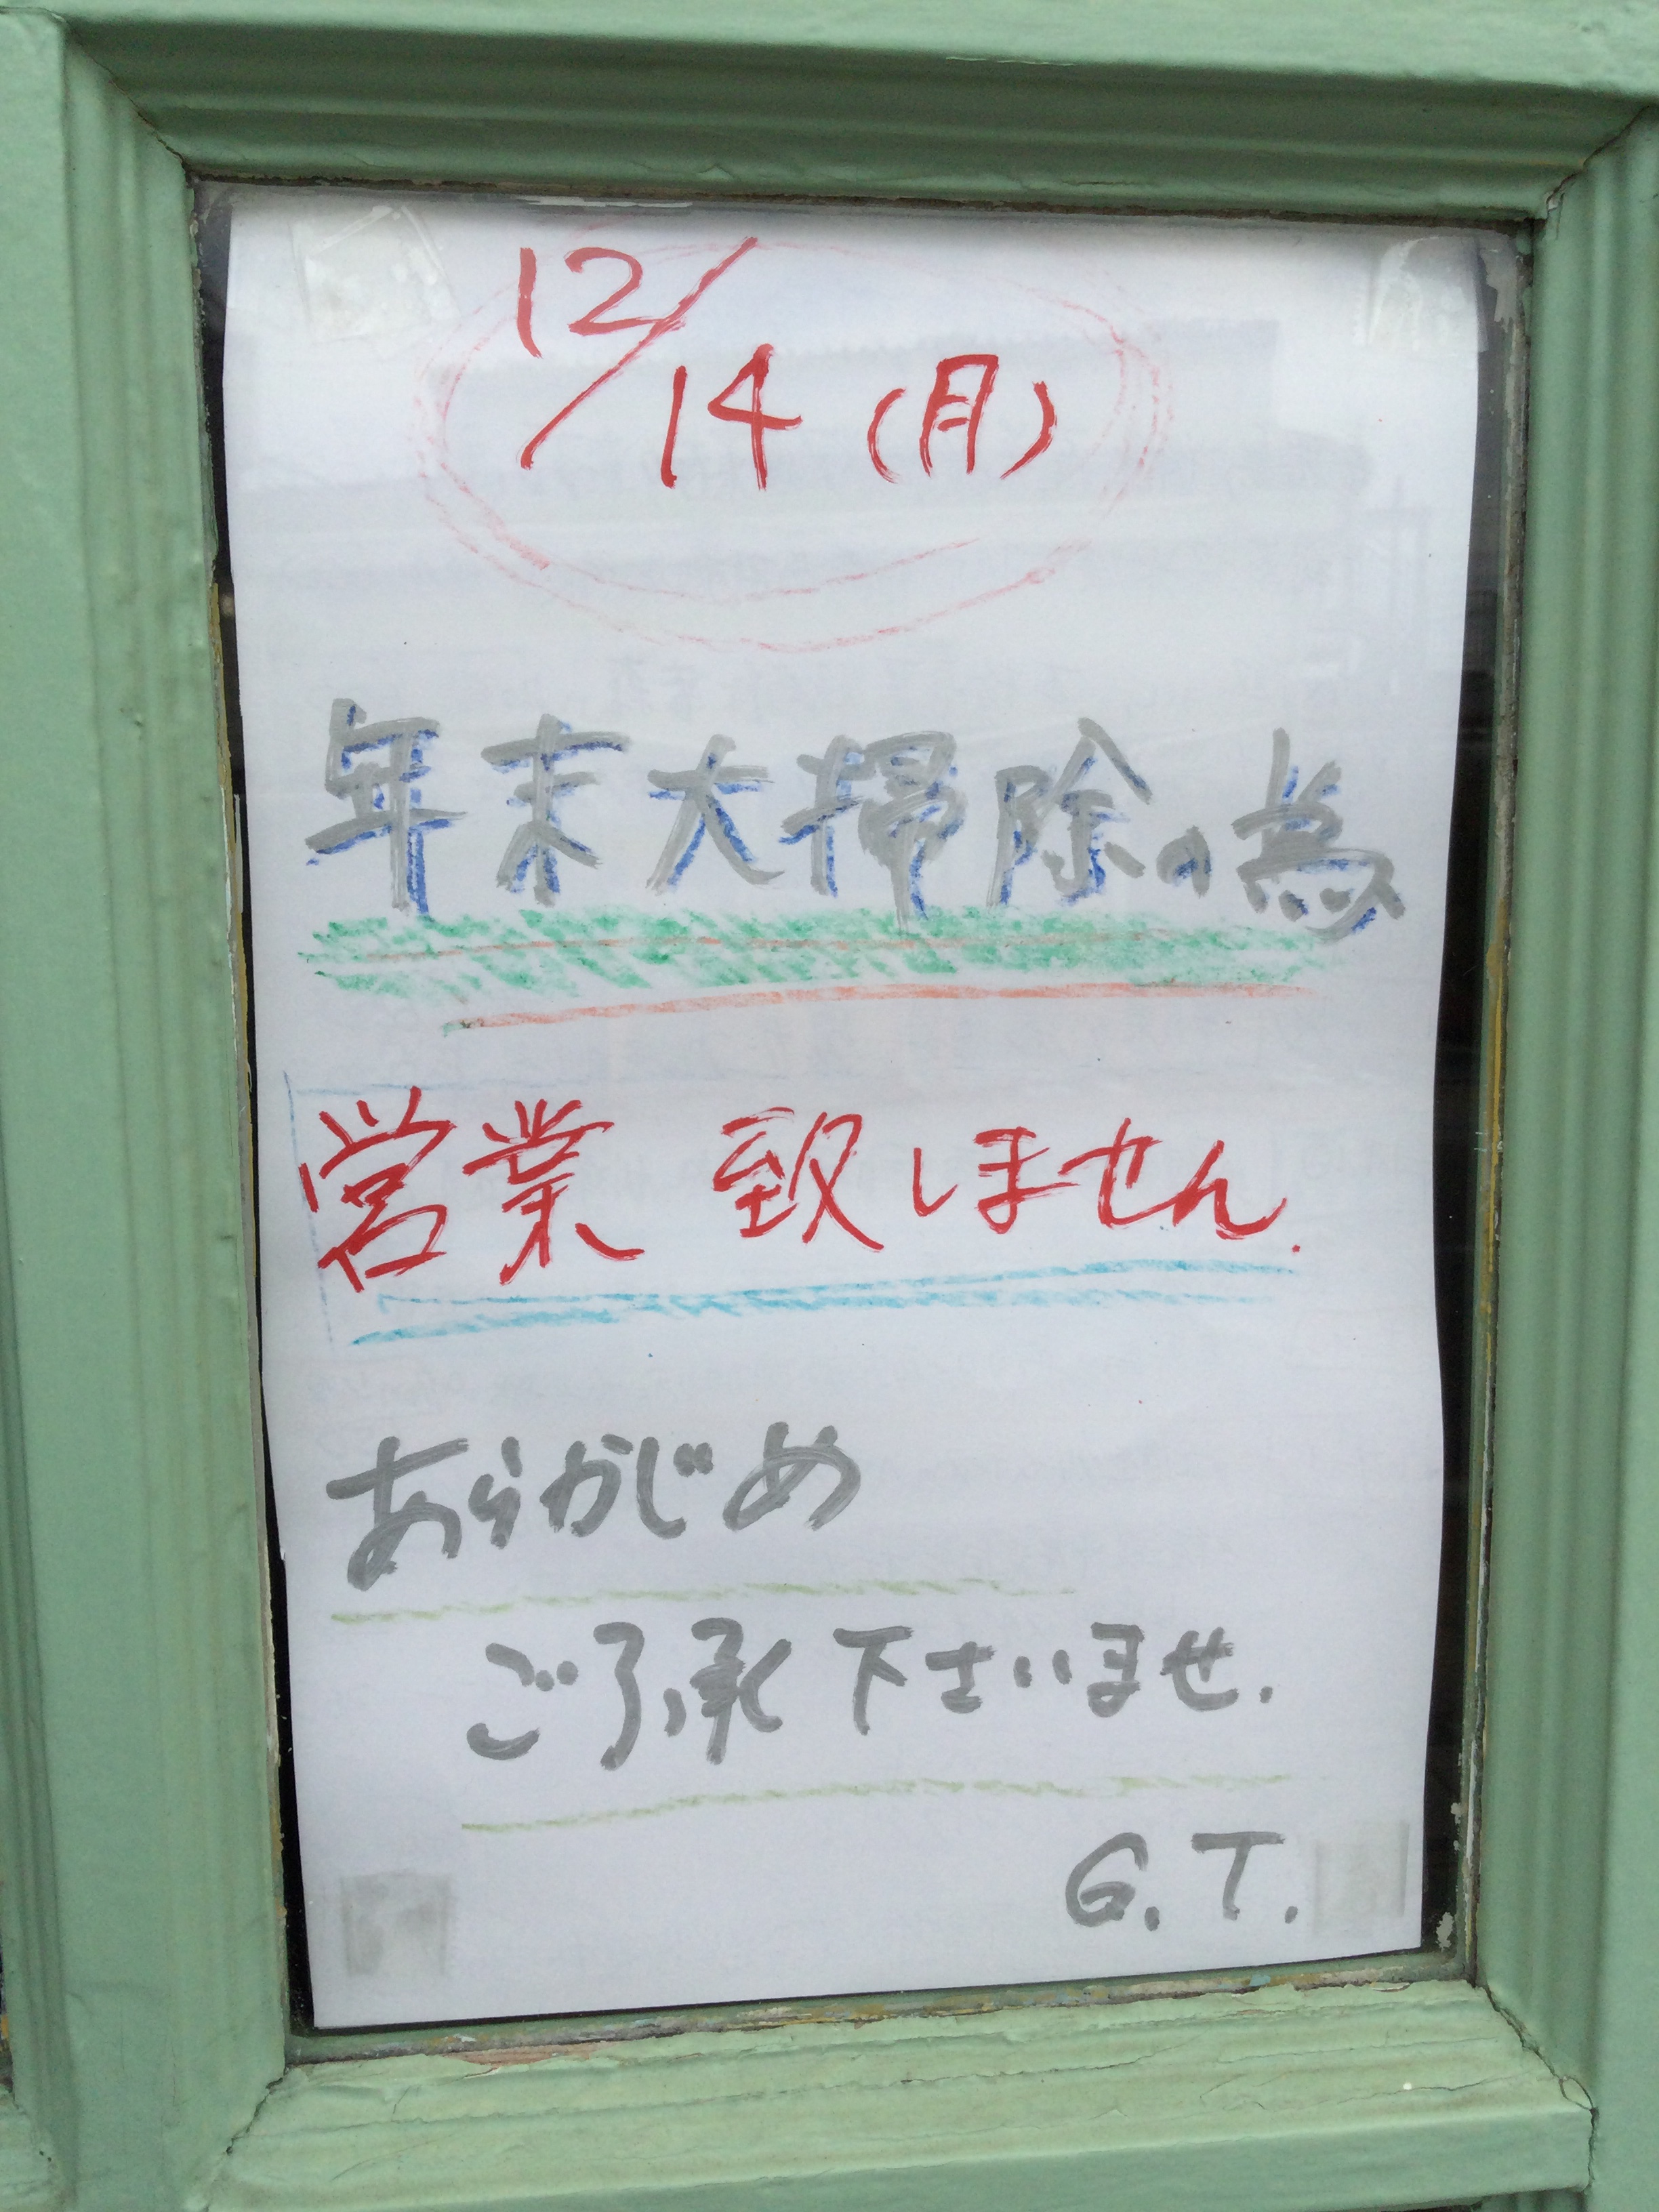 12/14(月)
年末大掃除の為
営業 致しません.
あらかじめ
ご了承下さいませ.
G.T.